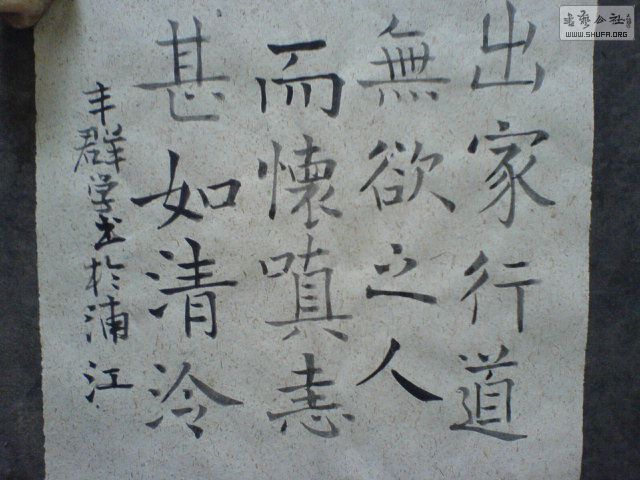 出家行道
無欲之人
而懷嗔恚
甚如清泠
丰群学书於浦江
书艺公社
WWW.SHUFA.ORG